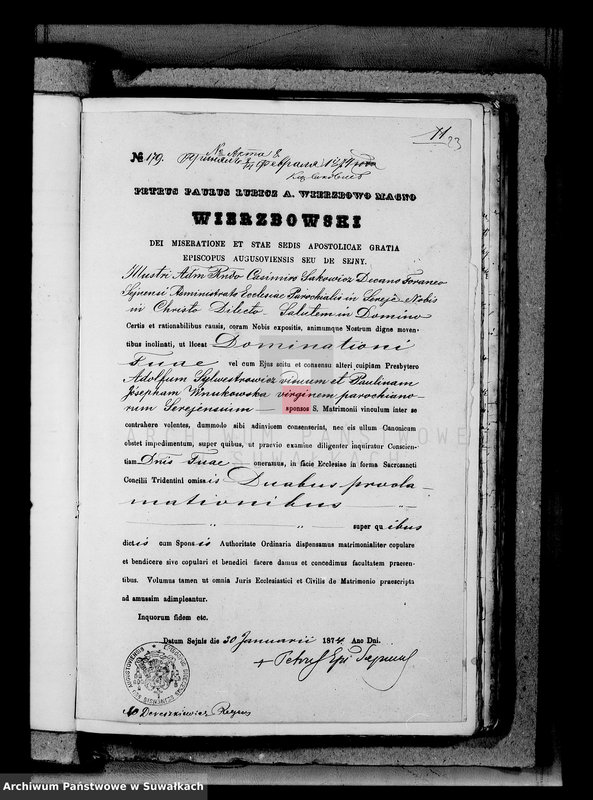 11
23
№ 179.
№ Акта 8
Февраля 1874 года
PETRUS PAULUS LUBICZ A. WIERZBOWO MAGNO
WIERZBOWSKI
DEI MISERATIONE ET STAE SEDIS APOSTOLICAE GRATIA
EPISCOPUS AUGUSOVIENSIS SEU DE SEJNY.
Illustri Adm Rndo Casimiro Sakowicz Decano Foraneo
Sejnensi Administrato Ecclesiae Parochialis in Sereje Nobis
in Christo Dilecto Salutem in Domino
Certis et rationabilibus causis, coram Nobis expositis, animumque Nostrum digne moven-
tibus inclinati, ut liceat Dominationi
Tuae vel cum Ejus scitu et consensu alteri cuipiam Presbytero
Adolfum Sylwestrowicz viduum et Paulinam
Josepham Wnukowska virginem parochiano-
rum Serejensium sponsos S. Matrimonii vinculum inter se
contrahere volentes, dummodo sibi adinvicem consenserint, nec eis ullum Canonicum
obstet impedimentum, super quibus, ut praevio examine diligenter inquiratur Conscien-
tiam Dnis Tuae oneramus, in facie Ecclesiae in forma Sacrosancti
Concilii Tridentini omissis Duabus procla-
mationibus
super quibus
dictis cum Sponsis Authoritate Ordinaria dispensamus matrimonialiter copulare
et bendicere sive copulari et benedici facere damus et concedimus facultatem praesen-
tibus. Volumus tamen ut omnia Juris Ecclesiastici et Civilis de Matrimonio praescripta
ad amussim adimpleantur.
Inquorum fidem etc.
Datum Sejnis die 30 Januarii 1874 Ano Dni.
+ Petrus Epi Sejnens
ARCHIWUM PAŃSTWOWE
W SUWAŁKACH
Archiwum Państwowe w Suwałkach